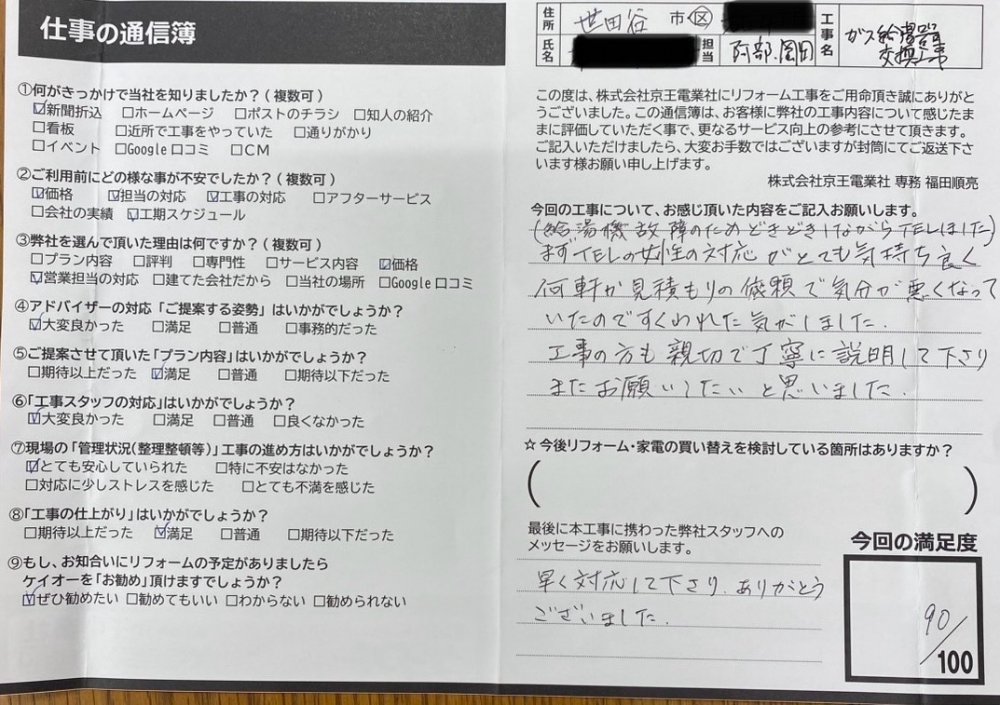 仕事の通信簿
①何がきっかけで当社を知りましたか？(複数可)
☑新聞折込 □ホームページ □ポストのチラシ □知人の紹介
□看板 □近所で工事をやっていた □通りがかり
□イベント □Google口コミ □CM
②ご利用前にどの様な事が不安でしたか？(複数可)
☑価格 ☑担当の対応 ☑工事の対応 □アフターサービス
□会社の実績 ☑工期スケジュール
③弊社を選んで頂いた理由は何ですか？(複数可)
□プラン内容 □評判 □専門性 □サービス内容 ☑価格
☑営業担当の対応 □建てた会社だから □当社の場所 □Google口コミ
④アドバイザーの対応「ご提案する姿勢」はいかがでしょうか？
☑大変良かった □満足 □普通 □事務的だった
⑤ご提案させて頂いた「プラン内容」はいかがでしょうか？
□期待以上だった ☑満足 □普通 □期待以下だった
⑥「工事スタッフの対応」はいかがでしょうか？
☑大変良かった □満足 □普通 □良くなかった
⑦現場の「管理状況(整理整頓等)」工事の進め方はいかがでしょうか？
☑とても安心していられた □特に不安はなかった
□対応に少しストレスを感じた □とても不満を感じた
⑧「工事の仕上がり」はいかがでしょうか？
□期待以上だった ☑満足 □普通 □期待以下だった
⑨もし、お知合いにリフォームの予定がありましたら
ケイオーを「お勧め」頂けますでしょうか？
☑ぜひ勧めたい □勧めてもいい □わからない □勧められない
住所 世田谷 市区
氏名 担当 阿部.岡田
工事名 ガス給湯器
交換工事
この度は、株式会社京王電業社にリフォーム工事をご用命頂き誠にありがと
うございました。この通信簿は、お客様に弊社の工事内容について感じたま
まに評価していただく事で、更なるサービス向上の参考にさせて頂きます。
ご記入いただけましたら、大変お手数ではございますが封筒にてご返送下さ
います様お願い申し上げます。
株式会社京王電業社 専務 福田順亮
今回の工事について、お感じ頂いた内容をご記入お願いします。
(給湯機故障のためどきどきしながらTELしました)
まずTELの女性の対応がとても気持ち良く
何軒か見積もりの依頼で気分が悪くなって
いたのですくわれた気がしました.
工事の方も親切で丁寧に説明して下さり
またお願いしたいと思いました.
☆今後リフォーム・家電の買い替えを検討している箇所はありますか？
( )
最後に本工事に携わった弊社スタッフへの
メッセージをお願いします。
早く対応して下さり、ありがとう
ございました.
今回の満足度
90/100